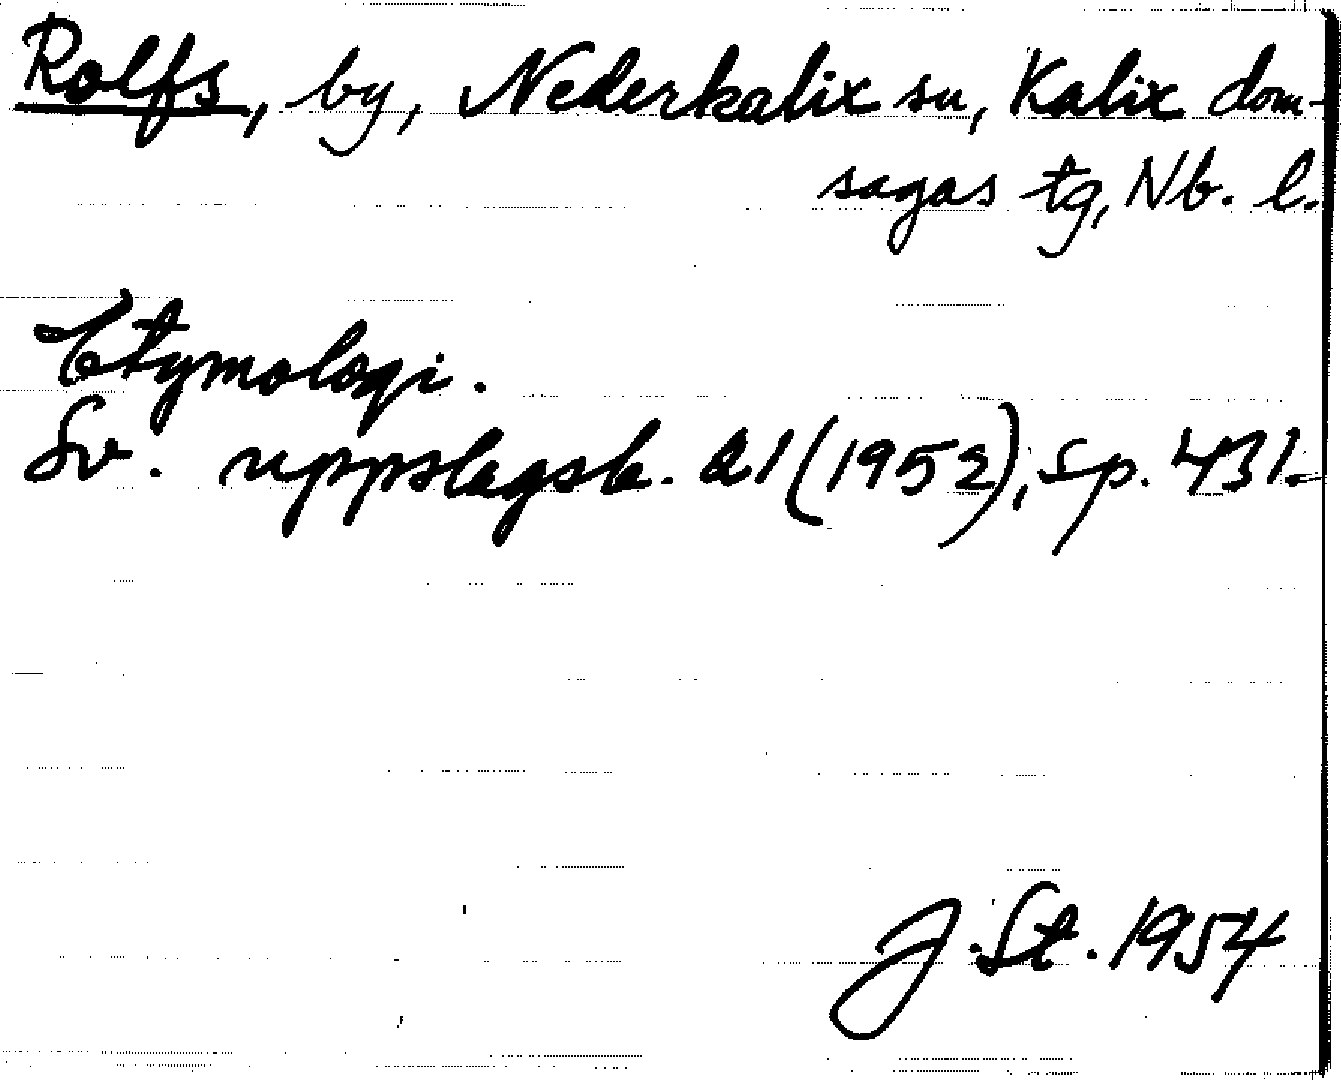 Rolfs, by, Nederkalix sn, Kalix dom-
sagas tg, Nb. l.
Etymologi.
Sv. uppslagsb. 21 (1952), sp. 431.
J. St. 1954